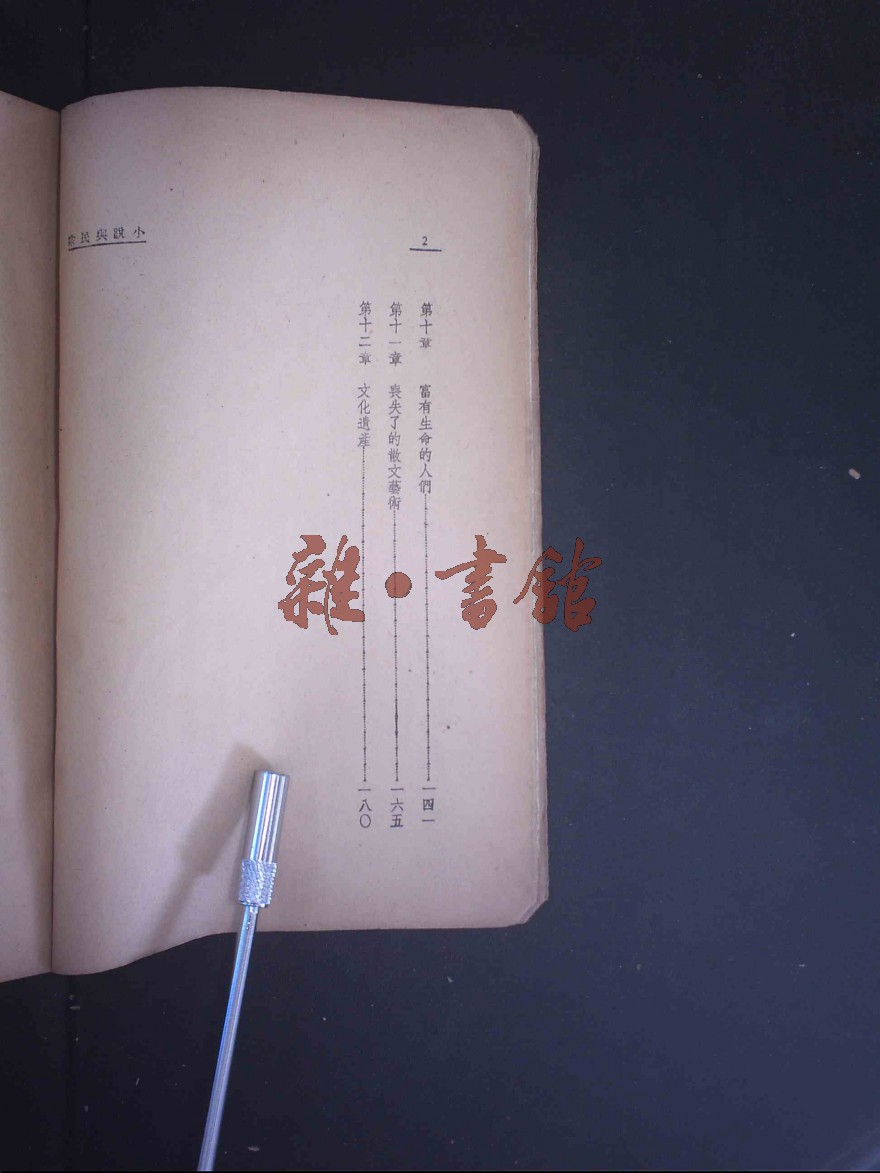 小說與民眾
2
第十章 富有生命的人們 一四一
第十一章 喪失了的散文藝術 一六五
第十二章 文化遺產 一八〇
雜·書館